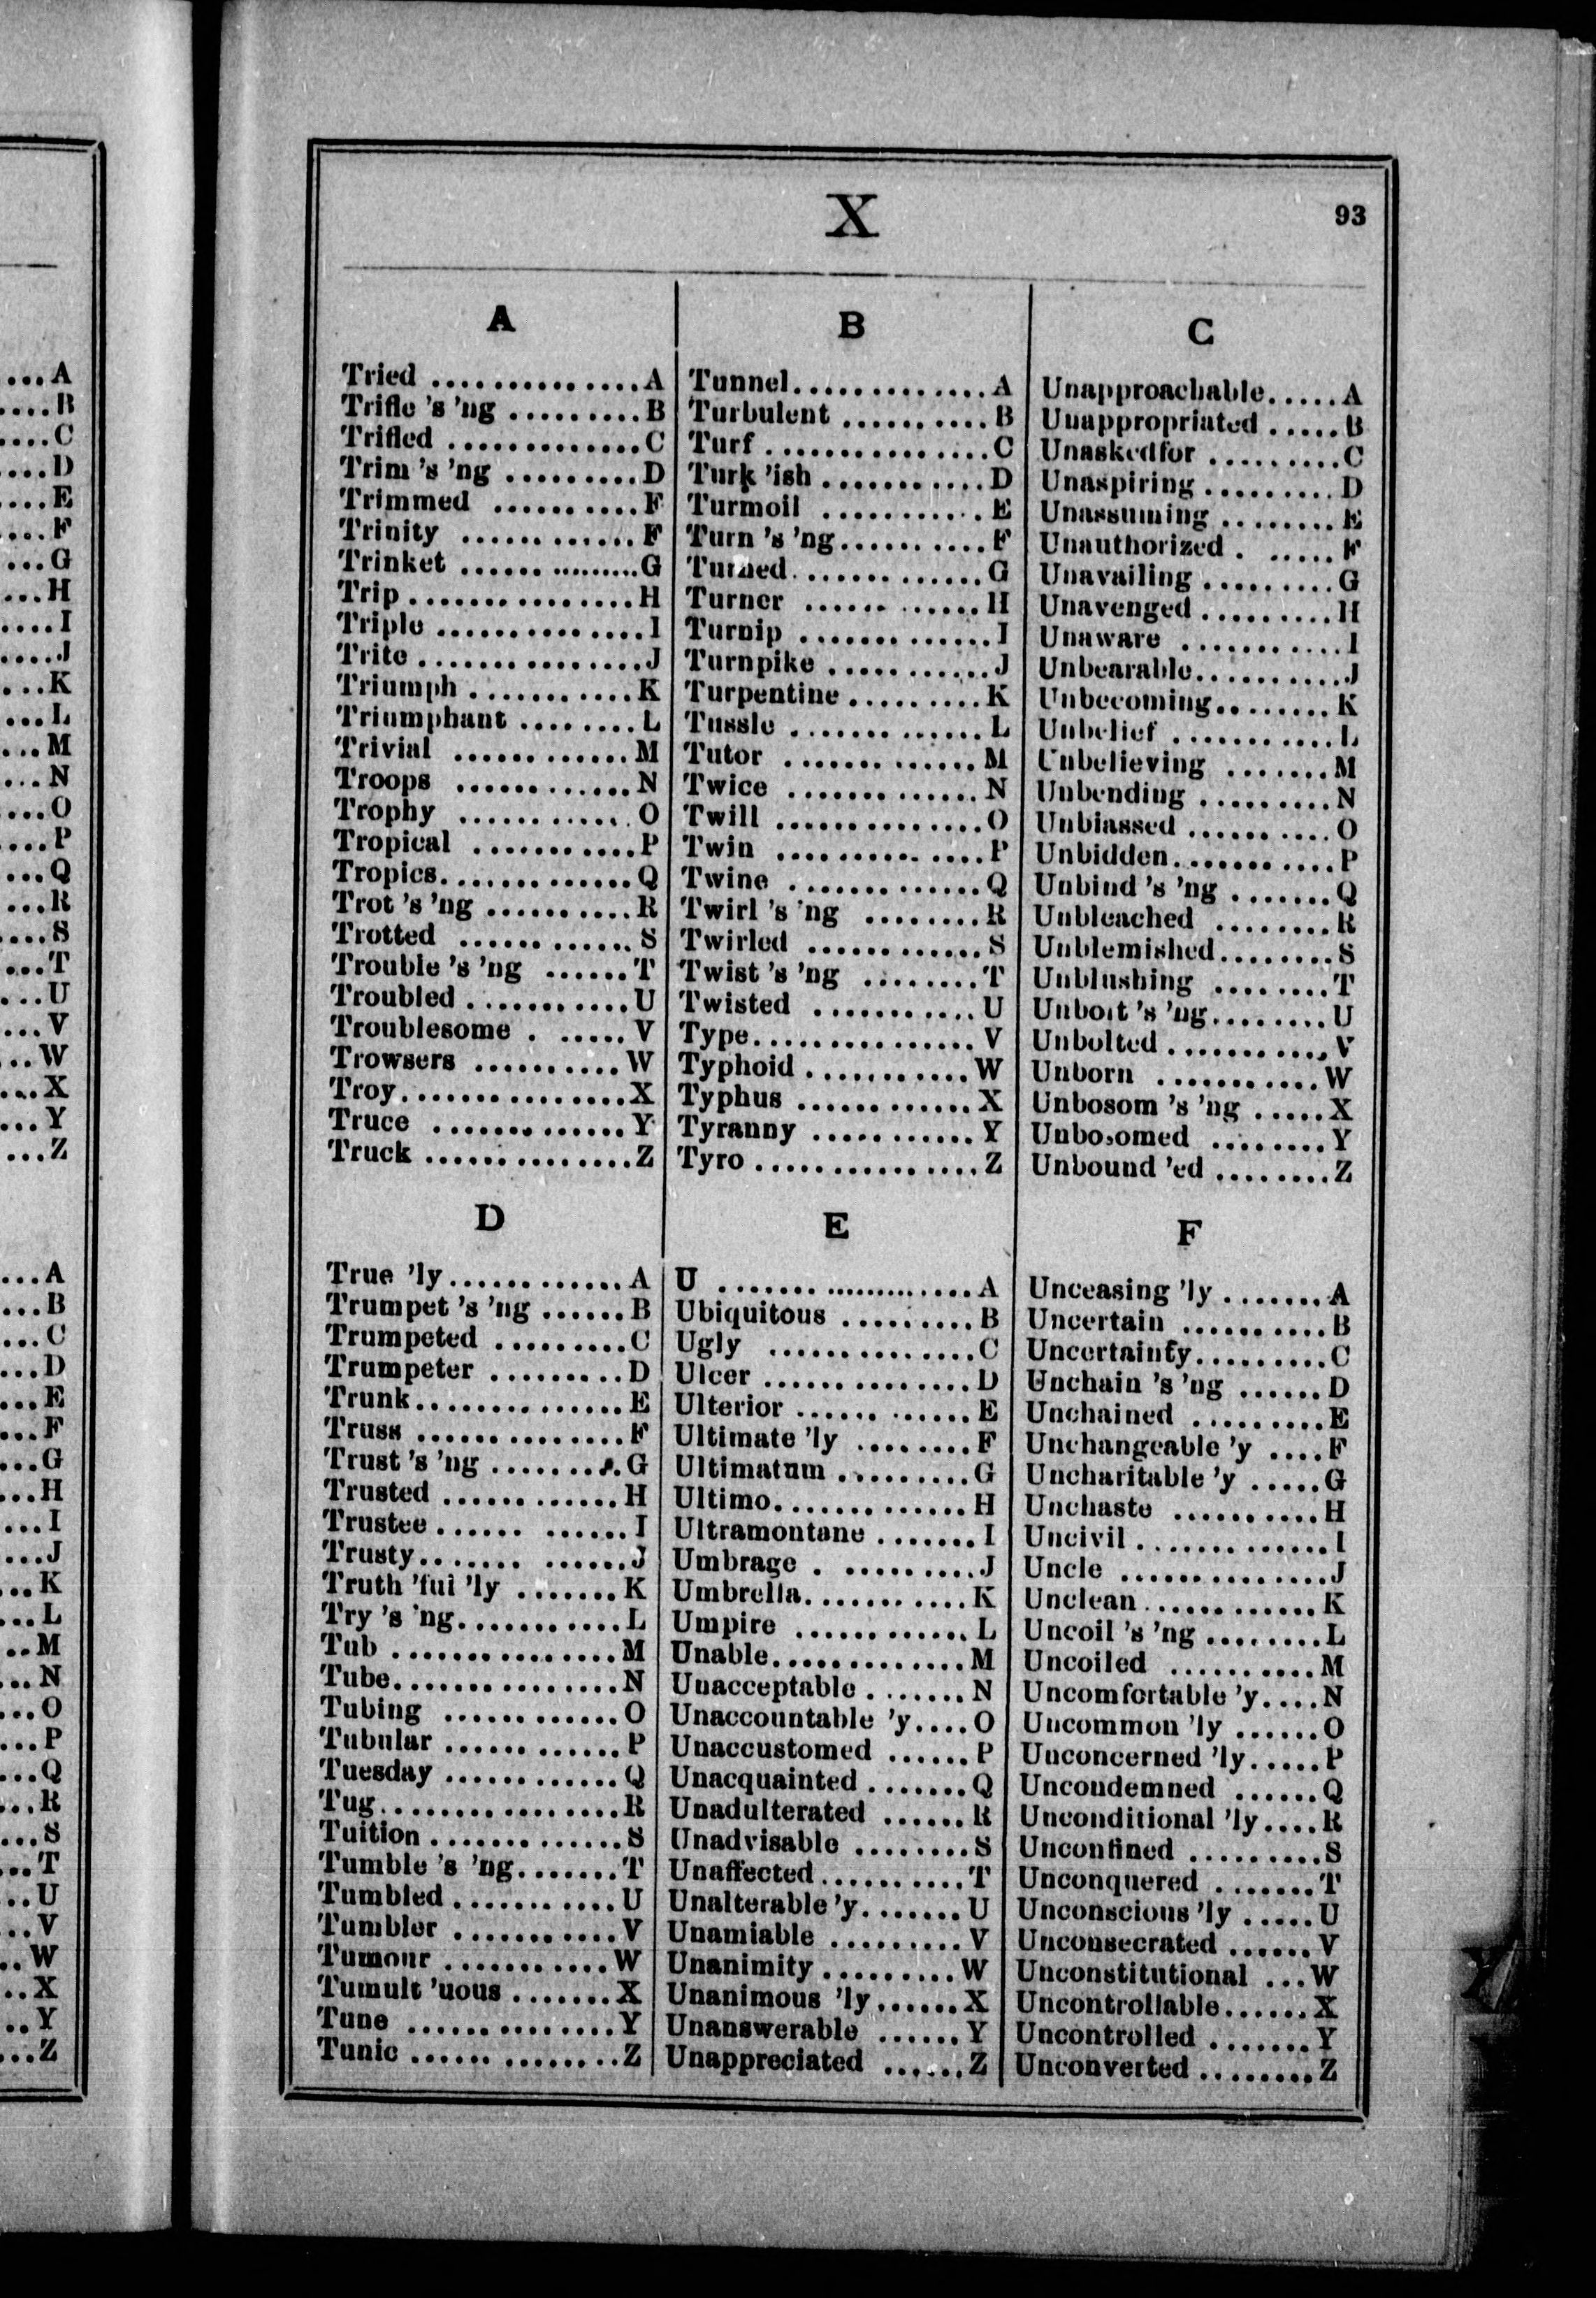 X
93
A
Tried ............... A
Trifle 's 'ng ......... B
Trifled .............. C
Trim 's 'ng .......... D
Trimmed .......... F
Trinity ............ F
Trinket ............... G
Trip ............... H
Triple .............. I
Trite ............... J
Triumph ........... K
Triumphant ........ L
Trivial ............ M
Troops ............ N
Trophy ............ O
Tropical ........... P
Tropics ............. Q
Trot 's 'ng .......... R
Trotted ............ S
Trouble 's 'ng ...... T
Troubled ........... U
Troublesome . ..... V
Trowsers .......... W
Troy ............... X
Truce ............. Y
Truck .............. Z
B
Tunnel ............. A
Turbulent .......... B
Turf ............... C
Turk 'ish ........... D
Turmoil ........... E
Turn 's 'ng .......... F
Turned ............. G
Turner ............ H
Turnip ............. I
Turnpike ........... J
Turpentine ......... K
Tussle ............. L
Tutor ............. M
Twice ............. N
Twill .............. O
Twin .............. P
Twine ............. Q
Twirl 's 'ng ........ R
Twirled ............ S
Twist 's 'ng ........ T
Twisted ........... U
Type ............... V
Typhoid ........... W
Typhus ............ X
Tyranny ........... Y
Tyro ............... Z
C
Unapproachable ..... A
Unappropriated ..... B
Unaskedfor ......... C
Unaspiring ......... D
Unassuming ........ E
Unauthorized . ..... F
Unavailing ......... G
Unavenged ......... H
Unaware ........... I
Unbearable .......... J
Unbecoming ........ K
Unbelief ........... L
Unbelieving ....... M
Unbending ......... N
Unbiassed .......... O
Unbidden ........... P
Unbind 's 'ng ....... Q
Unbleached ........ R
Unblemished ........ S
Unblushing ........ T
Unbolt 's 'ng ........ U
Unbolted ........... V
Unborn ........... W
Unbosom 's 'ng ..... X
Unbosomed ........ Y
Unbound 'ed ........ Z
D
True 'ly ............ A
Trumpet 's 'ng ...... B
Trumpeted ......... C
Trumpeter .......... D
Trunk .............. E
Truss .............. F
Trust 's 'ng ......... G
Trusted ............ H
Trustee ...... ...... I
Trusty ....... ...... J
Truth 'ful 'ly ....... K
Try 's 'ng ........... L
Tub ............... M
Tube ............... N
Tubing ............ O
Tubular ............ P
Tuesday ............ Q
Tug ................ R
Tuition ............. S
Tumble 's 'ng ....... T
Tumbled ........... U
Tumbler ........... V
Tumour ........... W
Tumult 'uous ....... X
Tune .............. Y
Tunic .............. Z
E
U ................. A
Ubiquitous ......... B
Ugly .............. C
Ulcer .............. D
Ulterior ............ E
Ultimate 'ly ........ F
Ultimatum ......... G
Ultimo ............. H
Ultramontane ....... I
Umbrage . ......... J
Umbrella ........... K
Umpire ............ L
Unable ............. M
Unacceptable ....... N
Unaccountable 'y .... O
Unaccustomed ...... P
Unacquainted ....... Q
Unadulterated ...... R
Unadvisable ........ S
Unaffected .......... T
Unalterable 'y ....... U
Unamiable ......... V
Unanimity ......... W
Unanimous 'ly ...... X
Unanswerable ...... Y
Unappreciated ...... Z
F
Unceasing 'ly ....... A
Uncertain .......... B
Uncertainty ......... C
Unchain 's 'ng ...... D
Unchained ......... E
Unchangeable 'y .... F
Uncharitable 'y ..... G
Unchaste .......... H
Uncivil ............. I
Uncle .............. J
Unclean ............ K
Uncoil 's 'ng ........ L
Uncoiled .......... M
Uncomfortable 'y .... N
Uncommon 'ly ...... O
Unconcerned 'ly ..... P
Uncondemned ...... Q
Unconditional 'ly .... R
Unconfined ......... S
Unconquered ....... T
Unconscious 'ly ..... U
Unconsecrated ...... V
Unconstitutional ... W
Uncontrollable ...... X
Uncontrolled ....... Y
Unconverted ........ Z
...A
....B
....C
....D
....E
....F
...G
...H
....I
....J
...K
...L
...M
...N
...O
...P
...Q
...R
....S
...T
...U
...V
..W
...X
...Y
...Z
...A
...B
...C
...D
...E
...F
...G
...H
...I
...J
...K
...L
..M
...N
...O
...P
...Q
...R
...S
...T
..U
..V
..W
..X
..Y
...Z